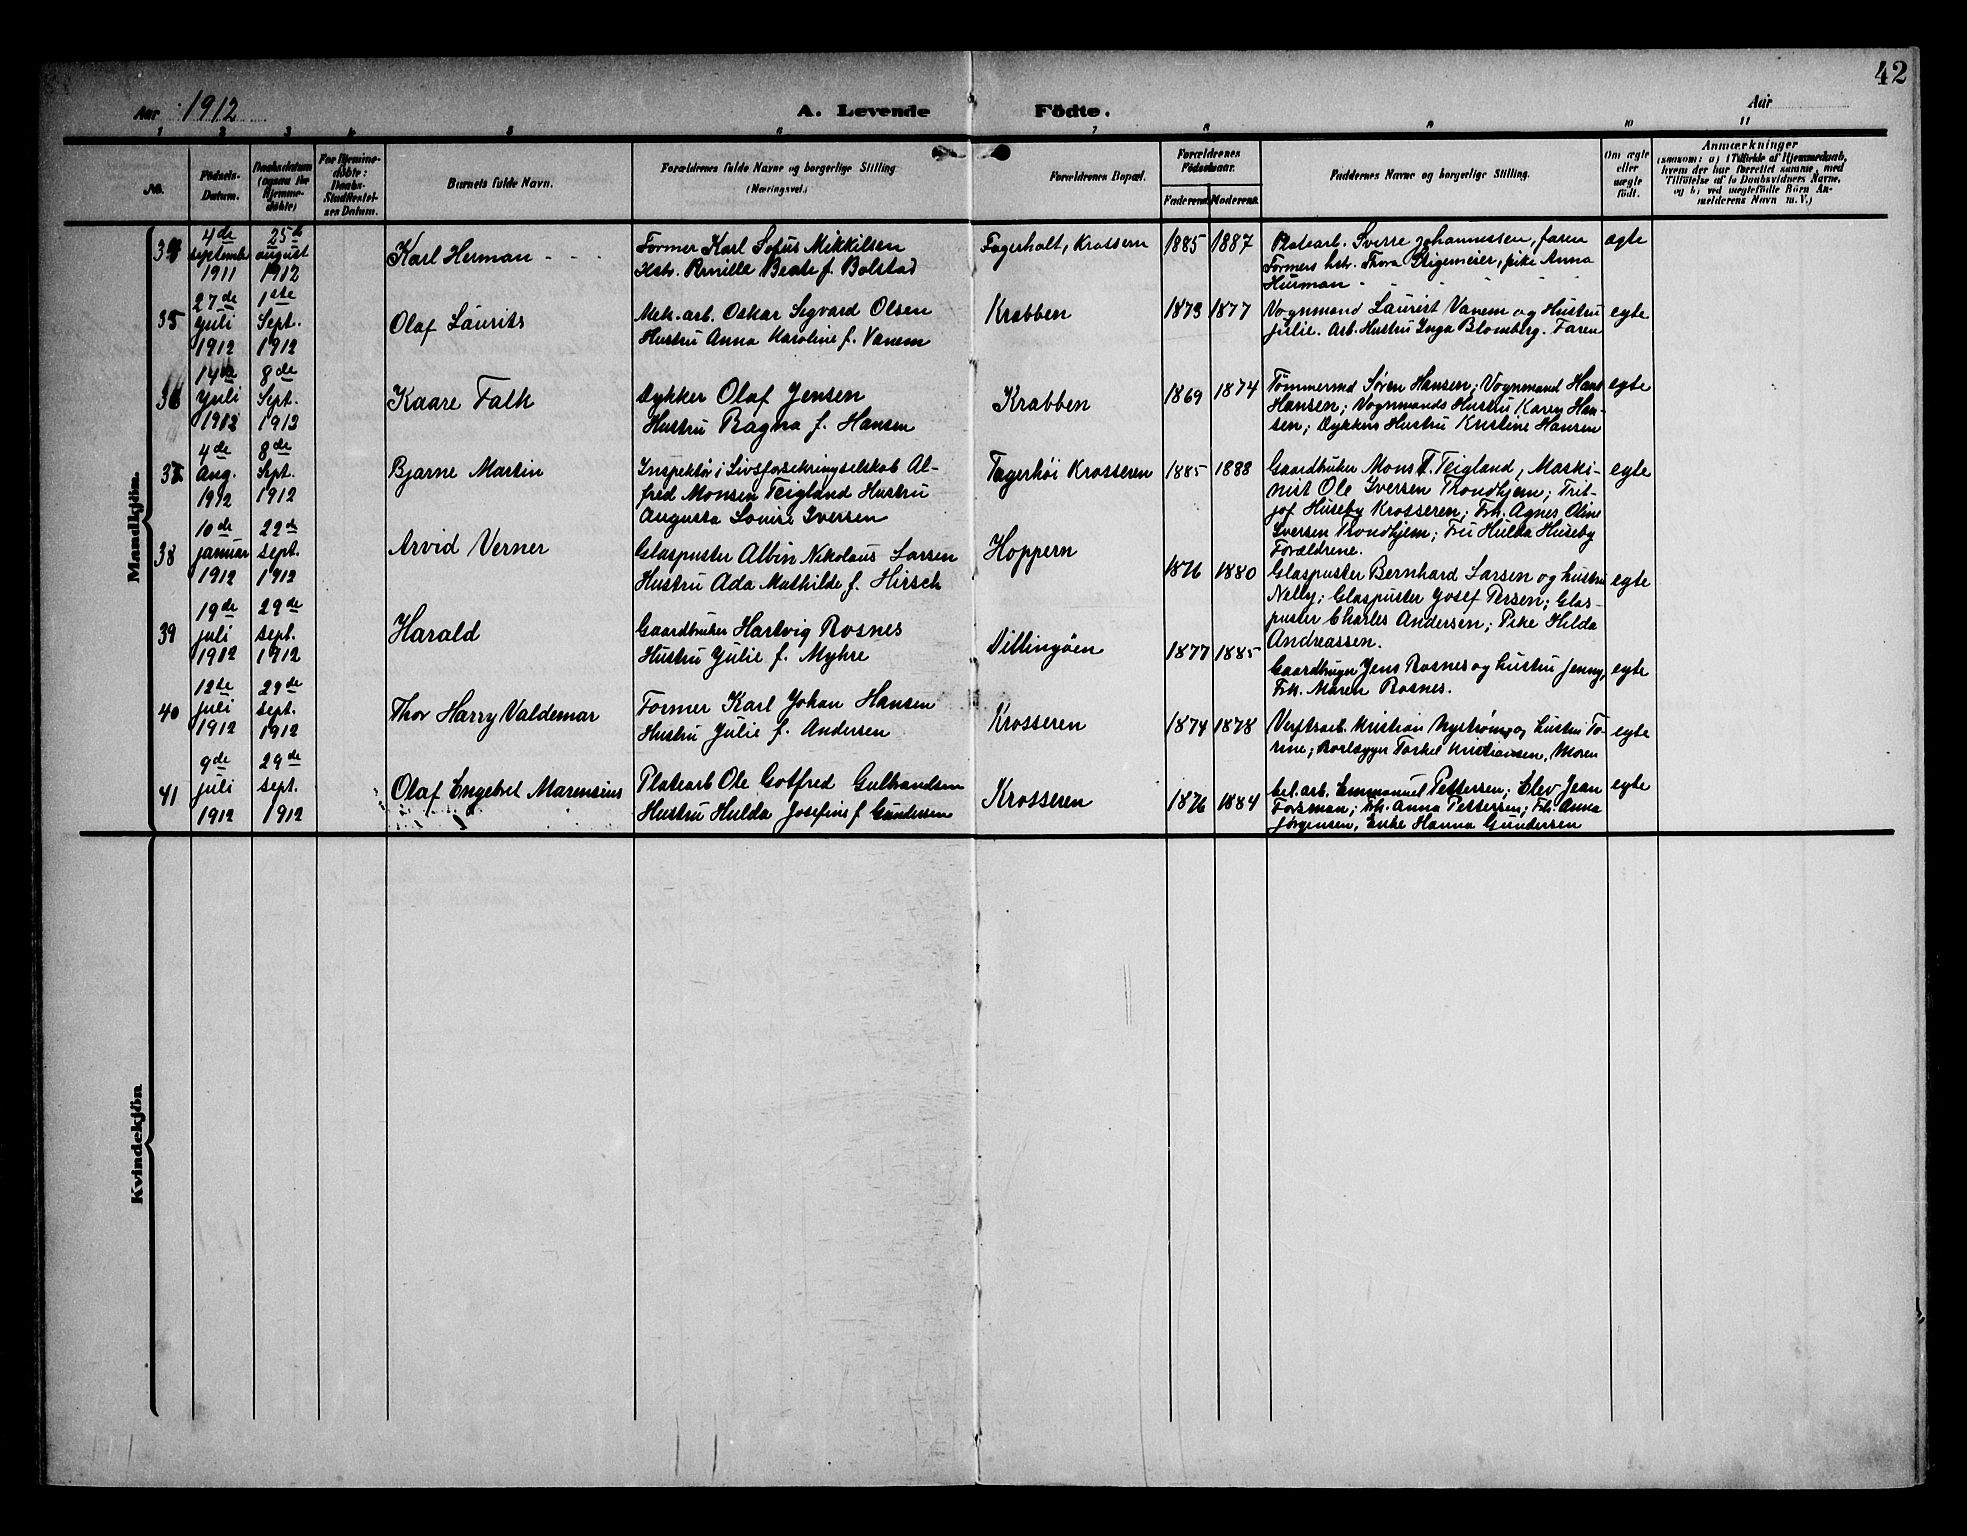 42
Aar 1912
A. Levende Födte.
Aar
1 2 3 4 5 6 7 8 9 10 11
No.
Födsels-
Datum.
Daabsdatum
(ogsaa for
Hjemme-
döbte)
For Hjemme-
döbte:
Daabs-
Stadfæstel-
sen Datum.
Barnets fulde Navn.
Forældrenes fulde Navne og borgerlige Stilling
(Næringsvei.)
Forældrenes Bopæl.
Forældrenes
Födselsaar.
Faderens Moderens.
Faddernes Navne og borgerlige Stilling.
Om ægte
eller
uægte
födt.
Anmærkninger
(saasom: a) i Tilfælde af Hjemmedaab,
hvem der har forrettet samme, med
Tilföielse af to Daabsvidners Navne,
og b) ved uægtefödte Börn An-
melderens Navn m. V.)
Mandkjön.
34
4de
septembr
1911
25de
august
1912
Karl Herman
Former Karl Sofus Mikkilsen
Hstr. Pernille Beate f. Bolstad
Fagerholt, Krossern
1885 1887
Platearb. Sverre Johannessen, faren
Formers hstr. Thora Stigemeier, pike Anna
Hurman
egte
35
27de
Juli
1912
1ste
Sept.
1912
Olaf Laurits
Mek. arb. Oskar Segvard Olsen
Hustru Anna Karoline f. Vanem
Krabben
1873 1877
Vognmand Laurist Vanem og Hustru
Julie. Arb. Hustru Inga Blomberg. Faren
egte
36
14de
Juli
1912
8de
Sept.
1912
Kaare Falk
Dykker Olaf Jensen
Hustru Ragna f. Hansen
Krabben
1869 1874
Tømmermd Søren Hansen; Vognmand Hans
Hansen; Vognmands Hustru Karen Han-
sen; Dykkers Hustru Kristine Hansen
egte
37
4de
Aug.
1912
8de
Sept.
1912
Bjarne Martin
Inspektør i Livsforsekringselskab Al-
fred Monsen Teigland Hustru
Augusta Louise Iversen
Fagerhöi Krosseren
1885 1888
Gaardbruker Mons T. Teigland, Maski-
nist Ole Iversen Trondhjem; Frit-
jof Huseby Krosseren; Frk. Agnes Oline
Iversen Trondhjem; Fru Hulda Huseby
Forældrene.
egte
38
10de
januar
1912
22de
sept.
1912
Arvid Verner
Glaspuster Albin Nikolaus Larsen
Hustru Ada Mathilde f. Hirsch
Hoppern
1876 1880
Glaspuster Bernhard Larsen og hustru
Nelly; Glaspuster Josef Persen; Glas-
puster Charles Andersen; Pike Hilda
Andreassen.
egte
39
19de
juli
1912
29de
sept.
1912
Harald
Gaardbruker Hartvig Rosnes
Hustru Julie f. Myhre
Dillingöen
1877 1885
Gaardbruger Jens Rosnes og hustru Jenny,
Frk. Maren Rosnes.
egte
40
12te
juli
1912
29de
sept.
1912
Thor Harry Valdemar
Former Karl Johan Hansen
Hustru Julie f. Andersen
Krosseren
1874 1878
Verftsarb. Kristian Nystrøm og hustru To-
rine; Rørlægger Torkel Kristiansen, Moren
egte
41
9de
juli
1912
29de
sept.
1912
Olaf Engebret Marensius
Platearb Ole Gotfred Gulbrandsen
Hustru Hulda Josefine f Gundersen
Krosseren
1876 1884
arb. Emmanuel Pettersen; Elev Jean
Forsman; Frk. Anna Pettersen; Frk. Anna
Jørgensen, Enke Hanna Gundersen
egte
Kvindekjön